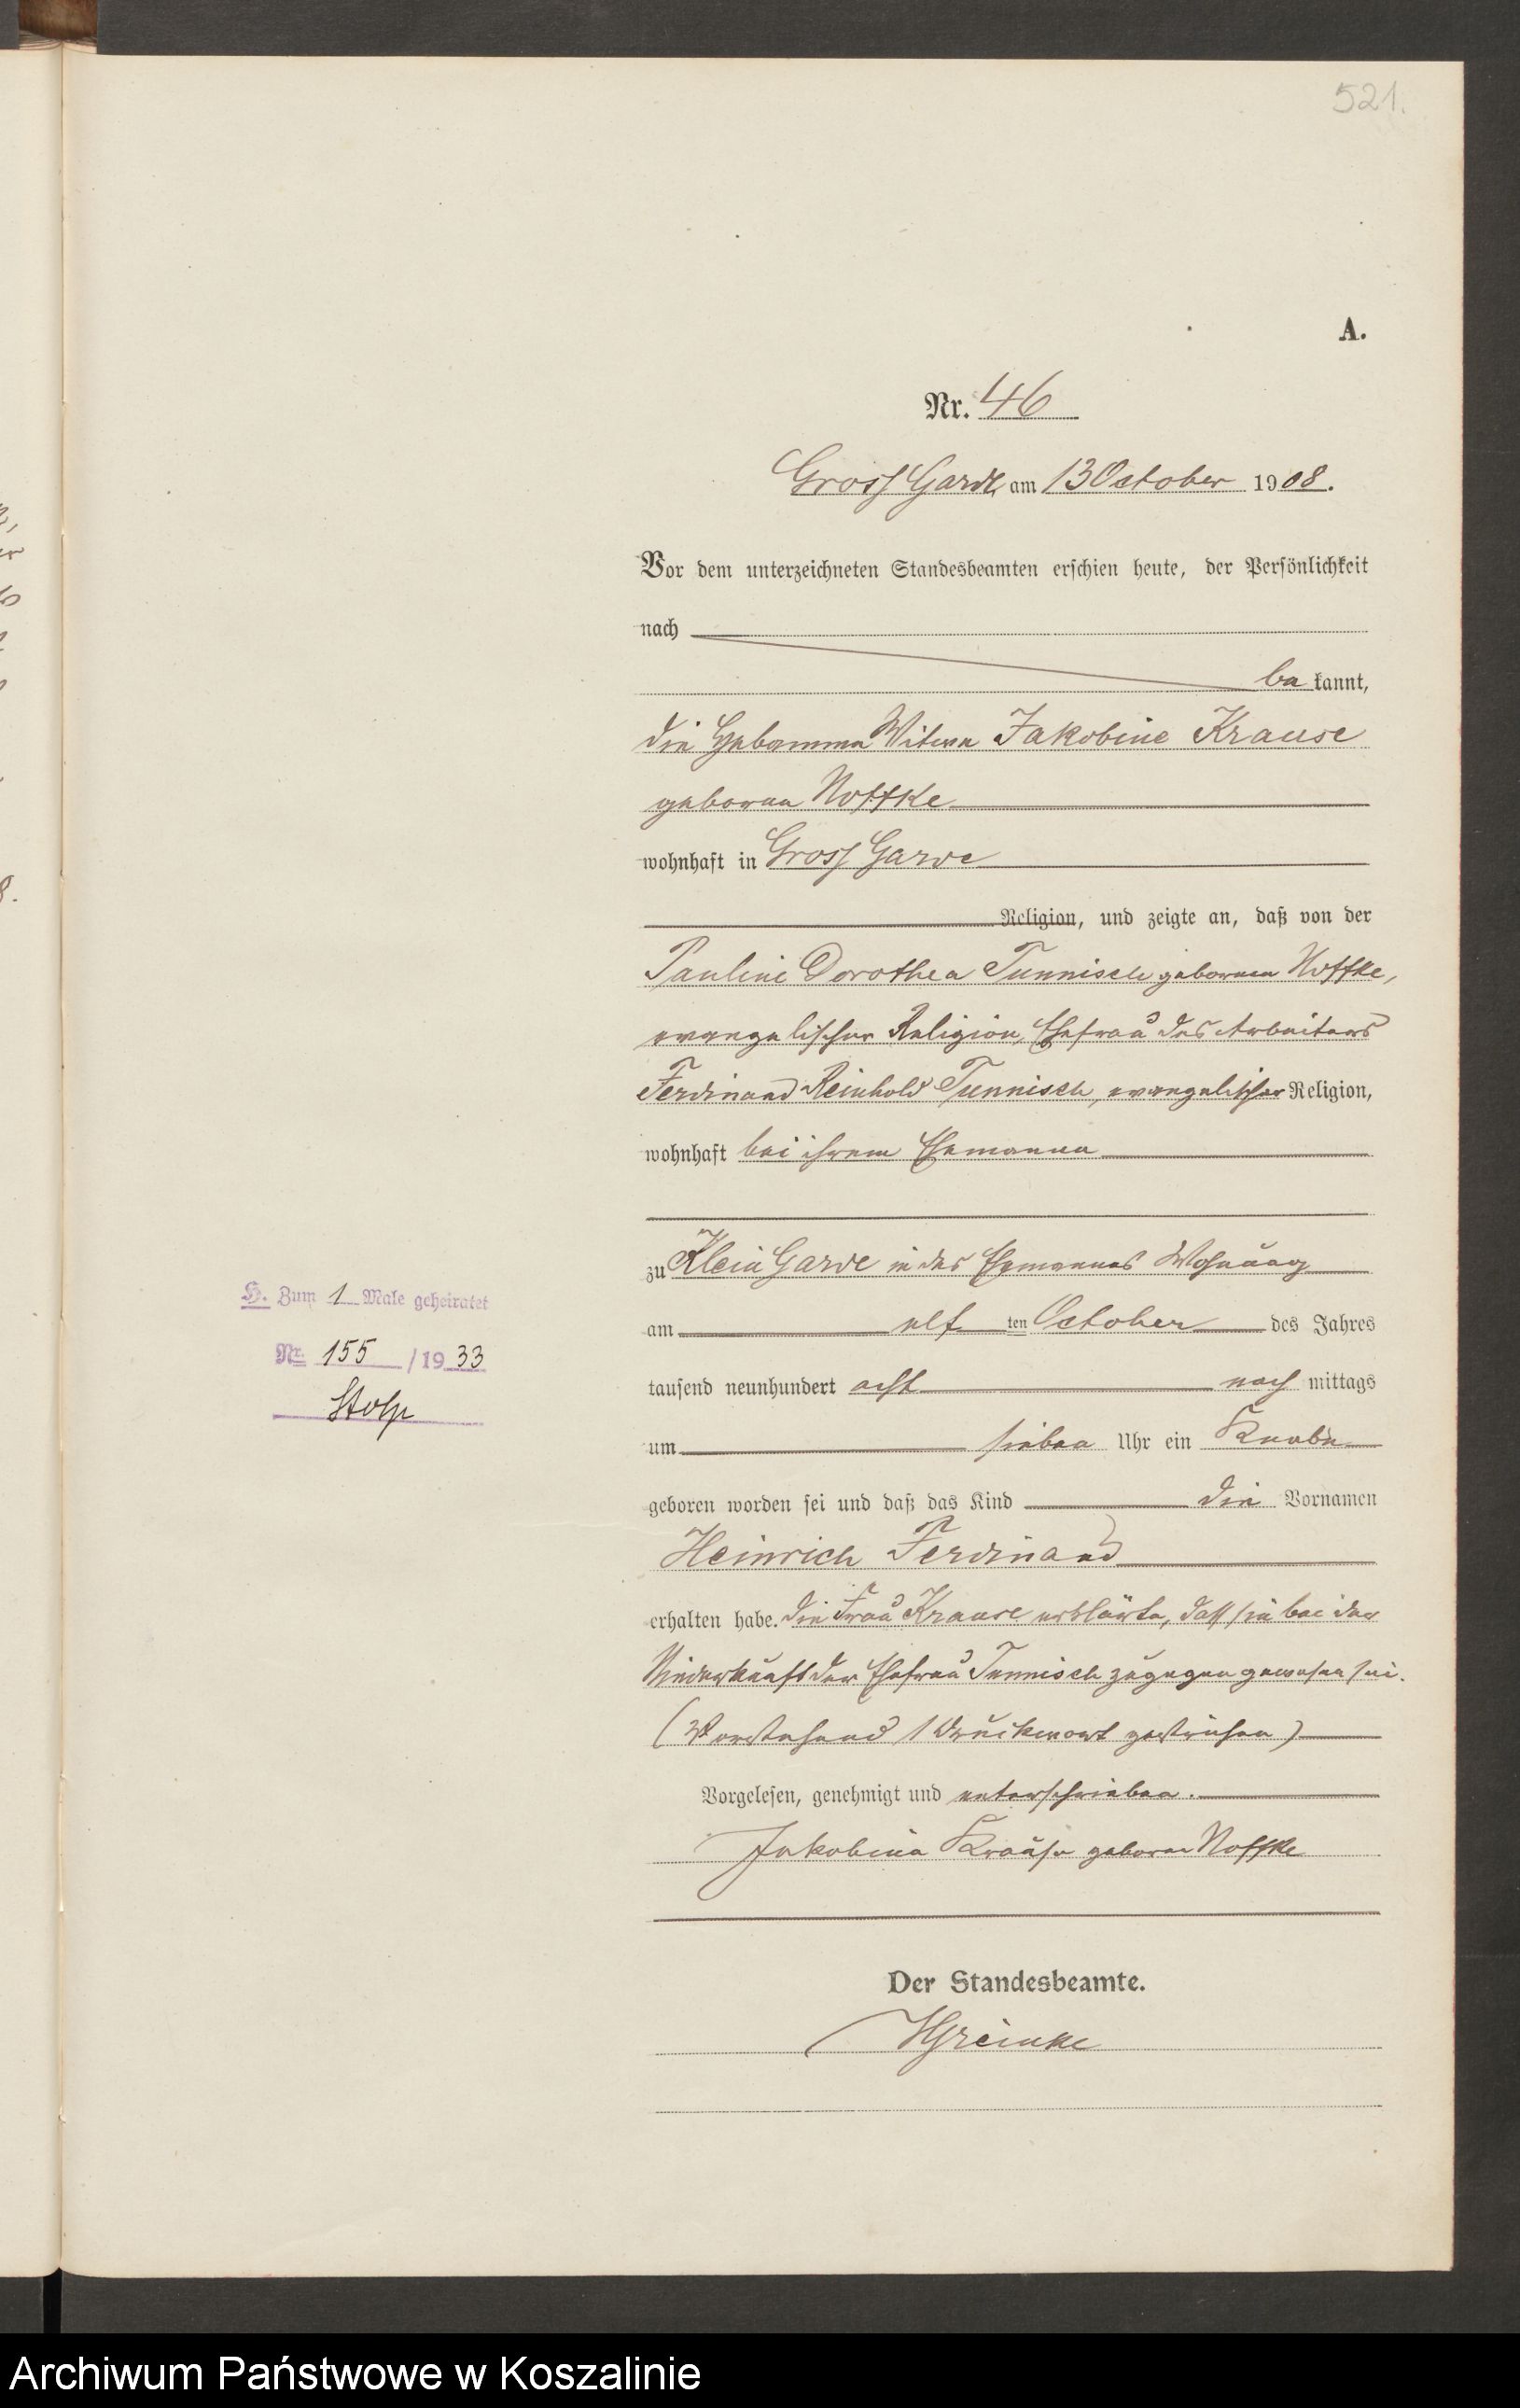 521.
A.
Nr. 46
Gross Garde, am 13 October 1908.
Vor dem unterzeichneten Standesbeamten erschien heute, der Persönlichkeit
nach
be kannt,
die Hebamme Witwe Jakobine Krause
geborene Noffke
wohnhaft in Gross Garde
Religion, und zeigte an, daß von der
Pauline Dorothea Tunnisch geborenen Noffke,
evangelischer Religion, Ehefrau des Arbeiters
Ferdinand Reinhold Tunnisch, evangelischer Religion,
wohnhaft bei ihrem Ehemanne
zu Klein Garde in des Ehemannes Wohnung
am elf ten October des Jahres
tausend neunhundert acht nach mittags
um sieben Uhr ein Knabe
geboren worden sei und daß das Kind die Vornamen
Heinrich Ferdinand
erhalten habe. Die Frau Krause erklärte, daß sie bei der
Niederkunft der Ehefrau Tunnisch zugegen gewesen sei.
(Vorstehend 1 Druckwort gestrichen)
Vorgelesen, genehmigt und unterschrieben.
Jakobine Krause geborene Noffke
Der Standesbeamte.
Greinke
H. Zum 1 Male geheiratet
Nr. 155 /1933
Stolp
8.
Archiwum Państwowe w Koszalinie